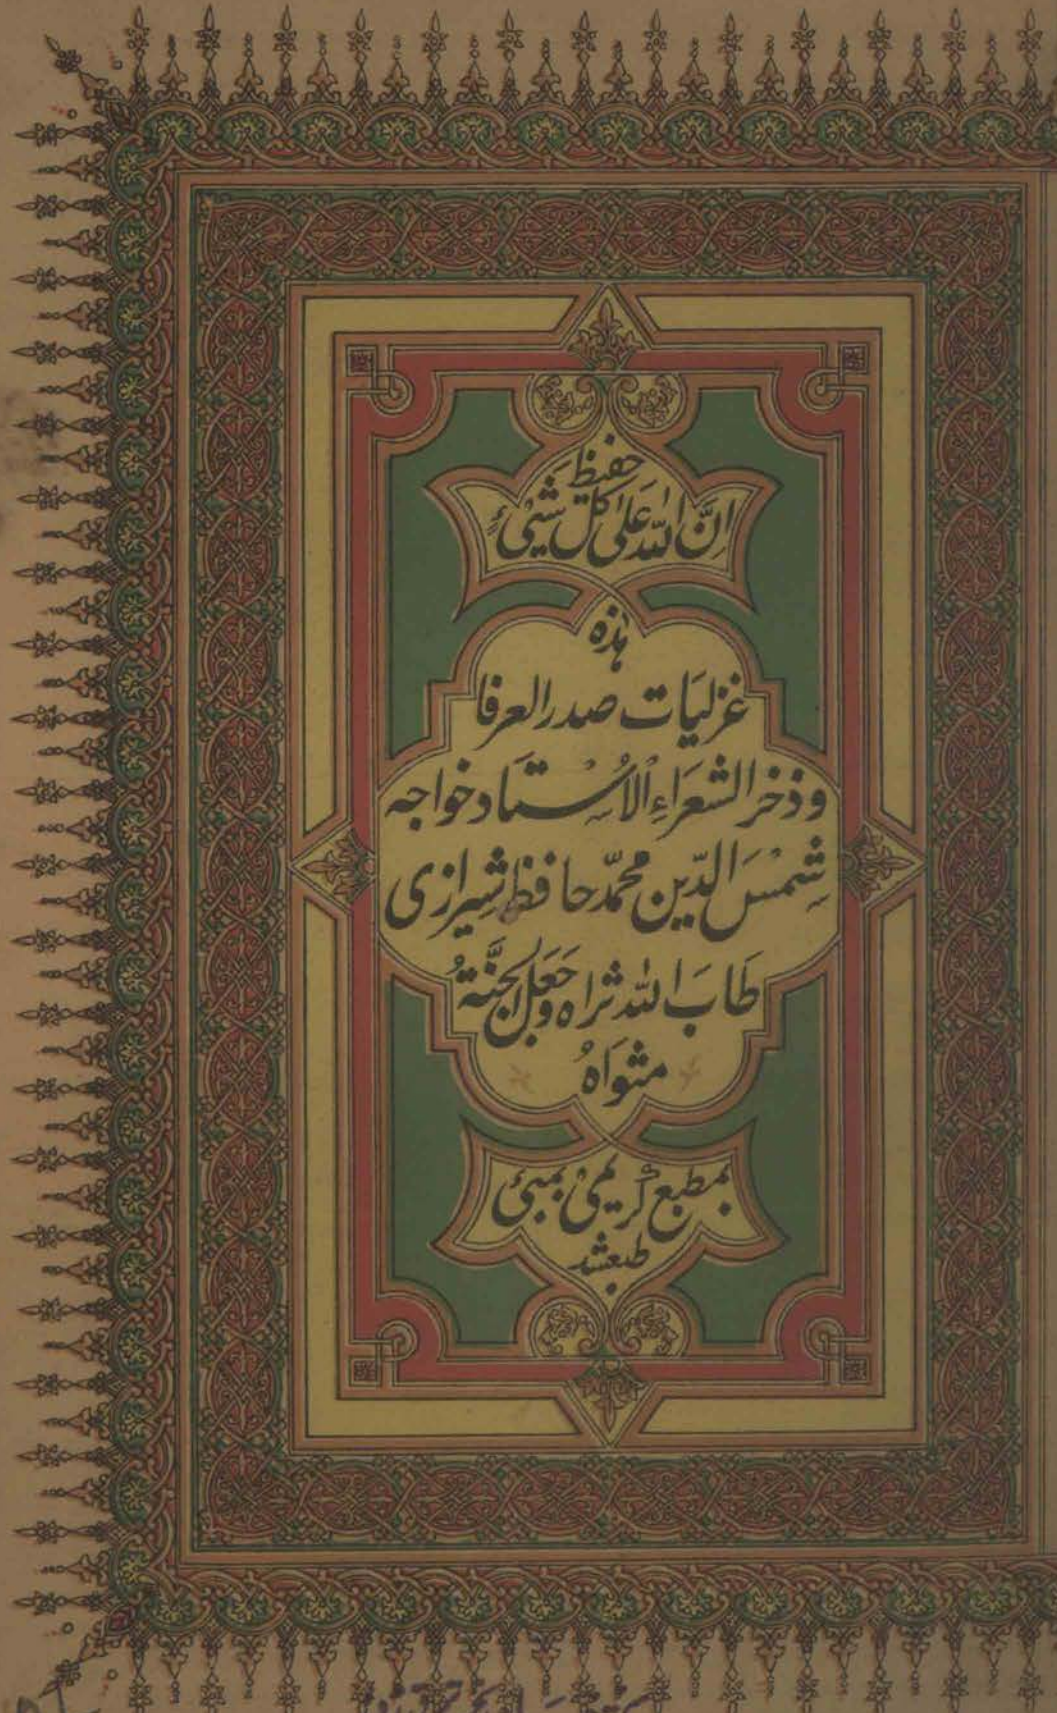 اِنَّ اللّٰهَ عَلٰی کُلِّ شَیْءٍ حَفِیْظ
هٰذه
غزلیَات صدر العرفا
وذخر الشعرَاءِ الاُسْتَاد خواجه
شمْسَ الدّین محمّد حافظ شیرازی
طَابَ اللّٰه ثراه وجَعَلَ الجنَّةُ
مثوَاهُ
بمطبع کریمی بمبئی
طبعشد